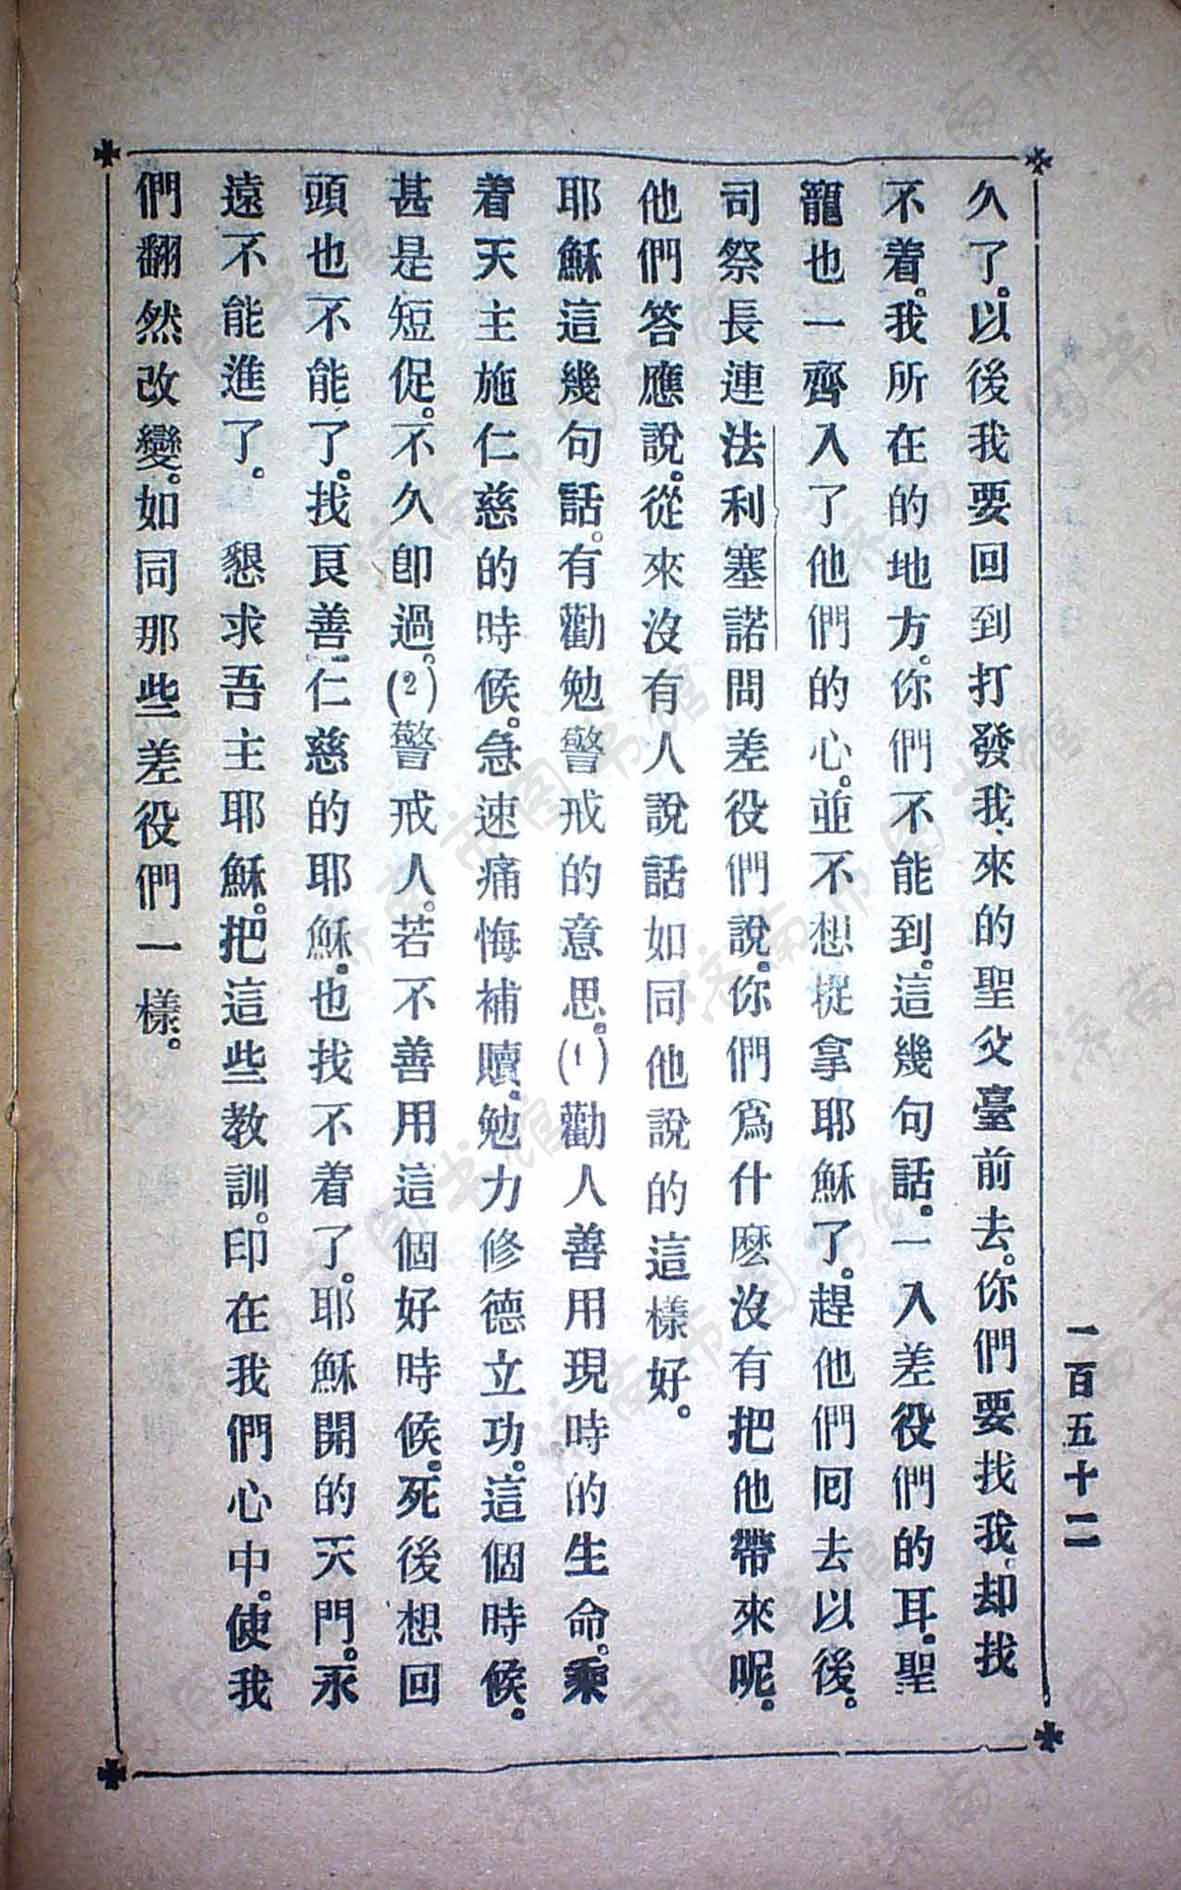 一百五十二
久了。以後我要回到打發我來的聖父臺前去。你們要找我、却找
不着。我所在的地方。你們不能到。這幾句話。一入差役們的耳。聖
寵也一齊入了他們的心。並不想捉拿耶穌了。趕他們回去以後。
司祭長連法利塞諾問差役們說。你們爲什麽沒有把他帶來呢。
他們答應說。從來沒有人說話如同他說的這樣好。
耶穌這幾句話。有勸勉警戒的意思。(1)勸人善用現時的生命。乘
着天主施仁慈的時候。急速痛悔補贖。勉力修德立功。這個時候。
甚是短促。不久卽過。(2)警戒人。若不善用這個好時候。死後想回
頭也不能了。找良善仁慈的耶穌。也找不着了。耶穌開的天門。永
遠不能進了。 懇求吾主耶穌。把這些教訓。印在我們心中。使我
們翻然改變。如同那些差役們一樣。
济南市图书馆